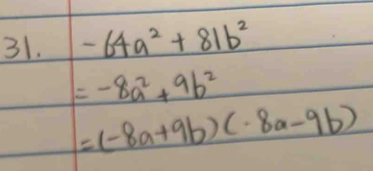 31. -64a² + 81b²
= -8a² + 9b²
= (-8a+9b)(-8a-9b)